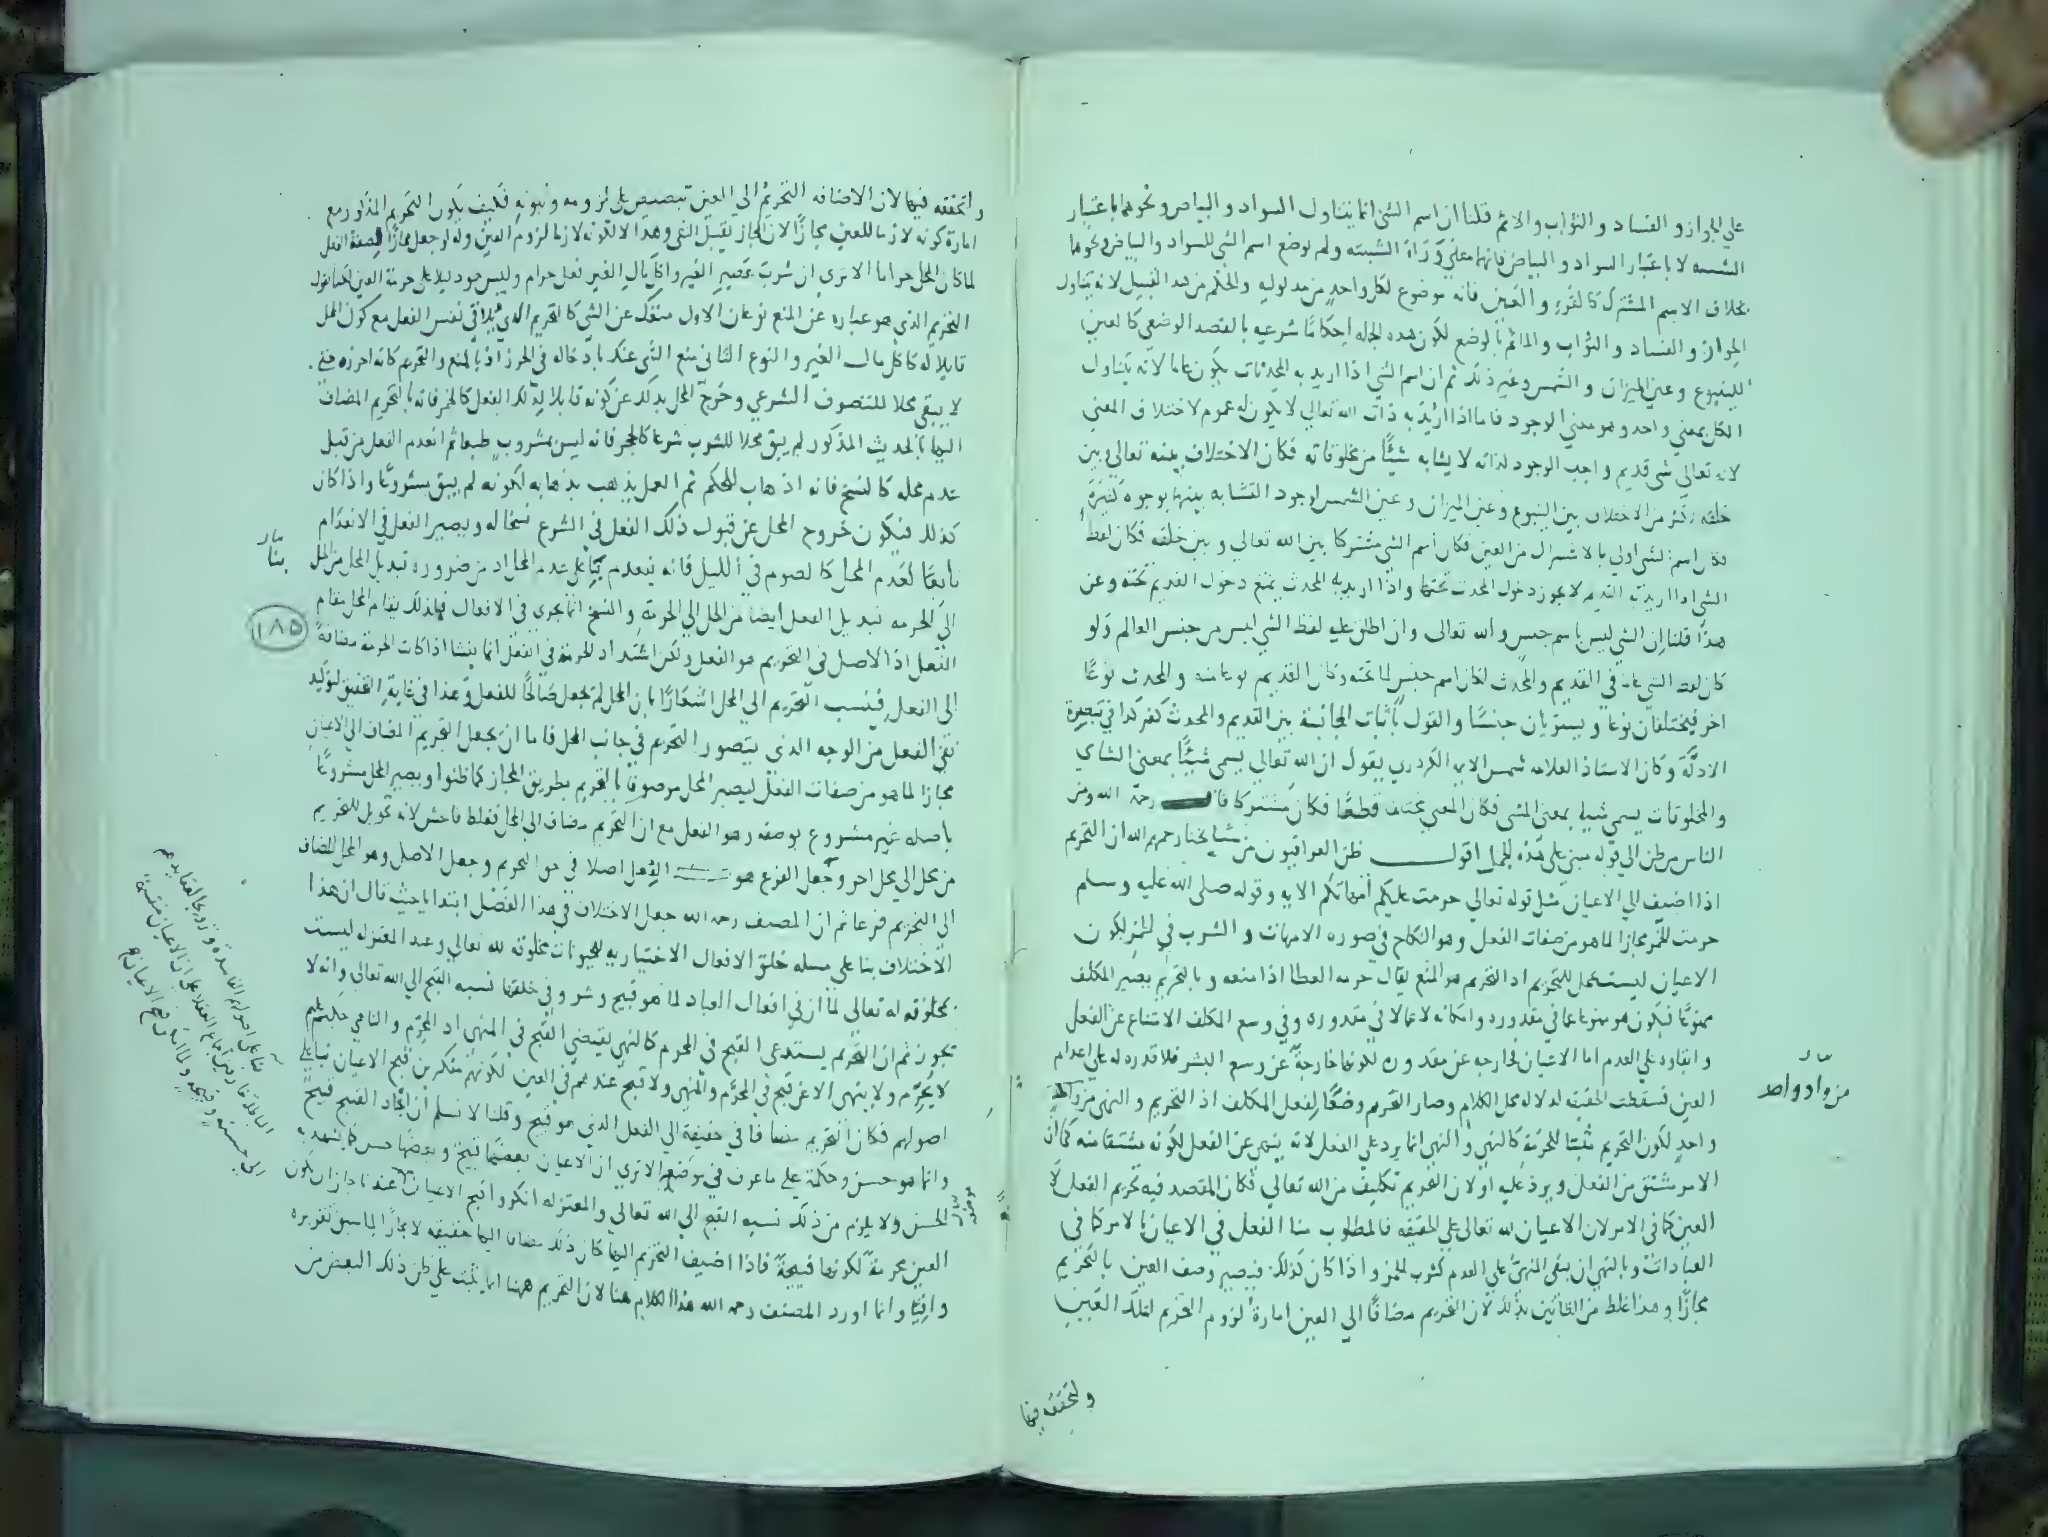 علي الجواز و الفساد و الثواب و الاثم قلنا ان اسم الشي انما يتناول السواد و البياض و نحوهما باعتبار
الشيئيه لا باعتبار السواد و البياض فانهما معني وراء الشيئيه ولم يوضع اسم الشي للسواد والبياض ونحوهما
بخلاف الاسم المشترك كالقرء و العين فانه موضوع لكل واحد من مدلوليه والحكم من هذا القبيل لانه يتناول
الجواز و الفساد و الثواب و المأثم بالوضع لكون هذه الجمله احكامًا شرعيه بالقصد الوضعي كالعين
للينبوع وعين الميزان و الشمس وغير ذلك ثم ان اسم الشي اذا اريد به المحدثات يكون عاما لانه يتناول
الكل بمعني واحد وهو معني الوجود فاما اذا اريد به ذات الله تعالي لا يكون له عموم لاختلاف المعني
لانه تعالي شي قديم واجب الوجود لذاته لا يشابه شيئًا من مخلوقاته فكان الاختلاف بينه تعالي وبين
خلقه اكثر من الاختلاف بين الينبوع وعين الميزان وعين الشمس لوجود التشابه بينها بوجوه كثيرة
فكان اسم الشي اولي بالاشتراك من العين فكان اسم الشي مشتركا بين الله تعالي و بين خلقه فكان لفظ
الشي اذا اريد به القديم لا يجوز دخول المحدث تحته واذا اريد به المحدث يمتنع دخول القديم تحته وعن
هذا قلنا ان الشي ليس باسم جنس و الله تعالي وان اطلق عليه لفظ الشي ليس من جنس العالم ولو
كان لفظ الشي عاما في القديم والمحدث لكان اسم جنس لما تحته وكان القديم نوعا منه و المحدث نوعًا
اخر فيختلفان نوعا و يستويان جنسًا و القول باثبات المجانسة بين القديم والمحدث كفر كذا في تبصرة
الادلّة و كان الاستاذ العلامه شمس الايمه الكردري يقول ان الله تعالي يسمي شيئًا بمعني الشائي
و المخلوقات يسمي شيئا بمعني المشي فكان المعني مختلفا قطعًا فكان مشتركا قال رحمه الله ومن
الناس من ظن الي قوله مبني علي هذه الجمل اقول ظن العراقيون من مشايخنا رحمهم الله ان التحريم
اذا اضيف الي الاعيان مثل قوله تعالي حرمت عليكم امهاتكم الايه و قوله صلي الله عليه وسلم
حرمت الخمر مجازا لما هو من صفات الفعل وهو النكاح في صوره الامهات و الشرب في الخمر لكون
الاعيان ليست بمحل للتحريم اذ التحريم هو المنع يقال حرمه العطا اذا منعه و بالتحريم يصير المكلف
ممنوعًا فيكون هو ممنوعا عما في مقدوره وامكانه لا عما لا في مقدوره وفي وسع المكلف الامتناع عن الفعل
و ابقاوه علي العدم اما الاعيان فخارجه عن مقدوره لكونها خارجةً عن وسع البشر فلا قدره له علي اعدام
العين فسقطت الحقيقه لدلاله محل الكلام وصار التحريم وصفًا لفعل المكلف اذ التحريم و النهي من واد
واحد لكون التحريم مثبتا للحرمة كالنهي و النهي انما يرد علي الفعل لانه ينهي عن الفعل لكونه مشتقا منه كما ان
الامر مشتق من الفعل و يرد عليه او لان التحريم تكليف من الله تعالي فكان المقصد فيه تحريم الفعل لا
العين كما في الامر لان الاعيان لله تعالي علي الحقيقه فالمطلوب منا الفعل في الاعيان بالامر كما في
العبادات و بالنهي ان يبقي المنهي علي العدم كشرب الخمر و اذا كان كذلك فيصير وصف العين بالتحريم
مجازًا و هذا غلط من الظانين بذلك لان التحريم مضافًا الي العين امارة لزوم التحريم لتلك العين
ولتحققه فيها
من واد واحد
و لتحققه فيها لان الاضافه التحريم الي العين تنصيص علي لزومه وثبوته فكيف يكون التحريم المذكور مع
امارة كونه لازما للعين مجازًا لان المجاز يقبل النفي وهذا لا لكونه لازما لزوم العين وله او جعل مجازًا لصفة الفعل
لما كان المحل حراما الا تري ان شرب عصير الغير و اكل مال الغير فعل حرام وليس هو دليلا علي حرمة العين لكنا نقول
التحريم الذي هو عباره عن المنع نوعان الاول منفك عن الشي كالتحريم الذي يلاقي نفس الفعل مع كون المحل
قابلا له كاكل مال الغير و النوع الثاني منع الشي عنك بادخاله في الحرز اذ بالمنع والتحريم كانه احرزه حتي
لا يبقي محلا للتصرف الشرعي وخرج المحل بذلك عن كونه قابلا لذلك الفعل كالخمر فانه بالتحريم المضاف
اليها بالحديث المذكور لم يبق محلا للشرب شرعا كالحجر فانه ليس بمشروب طبعا ثم انعدم الفعل من قبل
عدم محله كالنسخ فانه اذهاب للحكم ثم العمل يذهب بذهابه لكونه لم يبق مشروعًا واذا كان
كذلك فيكون خروج المحل عن قبول ذلك الفعل في الشرع نسخا له ويصير الفعل في الانعدام
تابعًا لعدم المحل كالصوم في الليل فانه ينعدم بناء علي عدم المحل اذ من ضروره تبديل المحل من الحل
الي الحرمه تبديل الفعل ايضا من الحل الي الحرمة و النسخ انما يجري في الافعال فلذلك يقام المحل مقام
الفعل اذ الاصل في التحريم هو الفعل ولكن اشتداد الحرمة في الفعل انما ينشا اذا كانت الحرمة مضافة
الي الفعل فينسب التحريم الي المحل اشعارًا بان المحل لم يجعل صالحًا للفعل وهذا في غاية التحقيق لتوكيد
نفي الفعل من الوجه الذي يتصور التحريم في جانب المحل فاما ان يجعل التحريم المضاف الي الاعيان
مجازا لما هو من صفات الفعل ليصير المحل موصوفا بالتحريم بطريق المجاز كما ظنوا ويصير المحل مشروعًا
باصله غير مشروع بوصفه وهو الفعل مع ان التحريم مضاف الي المحل فغلط فاحش لانه تحويل للتحريم
من محل الي محل اخر وجعل الفرع هو الفعل اصلا في حق التحريم وجعل الاصل وهو المحل المضاف
الي التحريم فرعا ثم ان المصنف رحمه الله جعل الاختلاف في هذا الفصل ابتدايا حيث قال ان هذا
الاختلاف بنا علي مسله خلق الافعال الاختياريه للحيوانات مخلوقه لله تعالي وعند المعتزله ليست
مخلوقه له تعالي لما ان في افعال العباد لما هو قبيح وشر وفي خلقها نسبه القبح الي الله تعالي وانه لا
يجوز ثم ان التحريم يستدعي القبح في المحرم كالنهي يقتضي القبح في المنهي اذ المحرِّم و الناهي حكيم
لا يُحرِّم ولا ينهي الا عن قبح في المحرّم والمنهي ولا قبح عندهم في العين لكونهم منكرين قبح الاعيان بنا علي
اصولهم فكان التحريم مضافا في حقيقة الي الفعل الذي هو قبيح وقلنا لا نسلم ان ايجاد القبيح قبيح
وانما هو حسن وحكمة علي ما عرف في موضعه الا تري ان الاعيان بعضها قبيح وبعضها حسن كما يشهد به
الحسن ولا يلزم من ذلك نسبه القبح الي الله تعالي والمعتزله انكروا قبح الاعيان عندنا جاز ان يكون
العين محرمةً لكونها قبيحةً فاذا اضيف التحريم اليها كان ذلك مضافا اليها حقيقه لا مجازًا لما سبق تقريره
وافيًا وانما اورد المصنف رحمه الله هذا الكلام هنا لان التحريم ههنا انما يثبت علي ظن ذلك البعض من
بنا
١٨٥